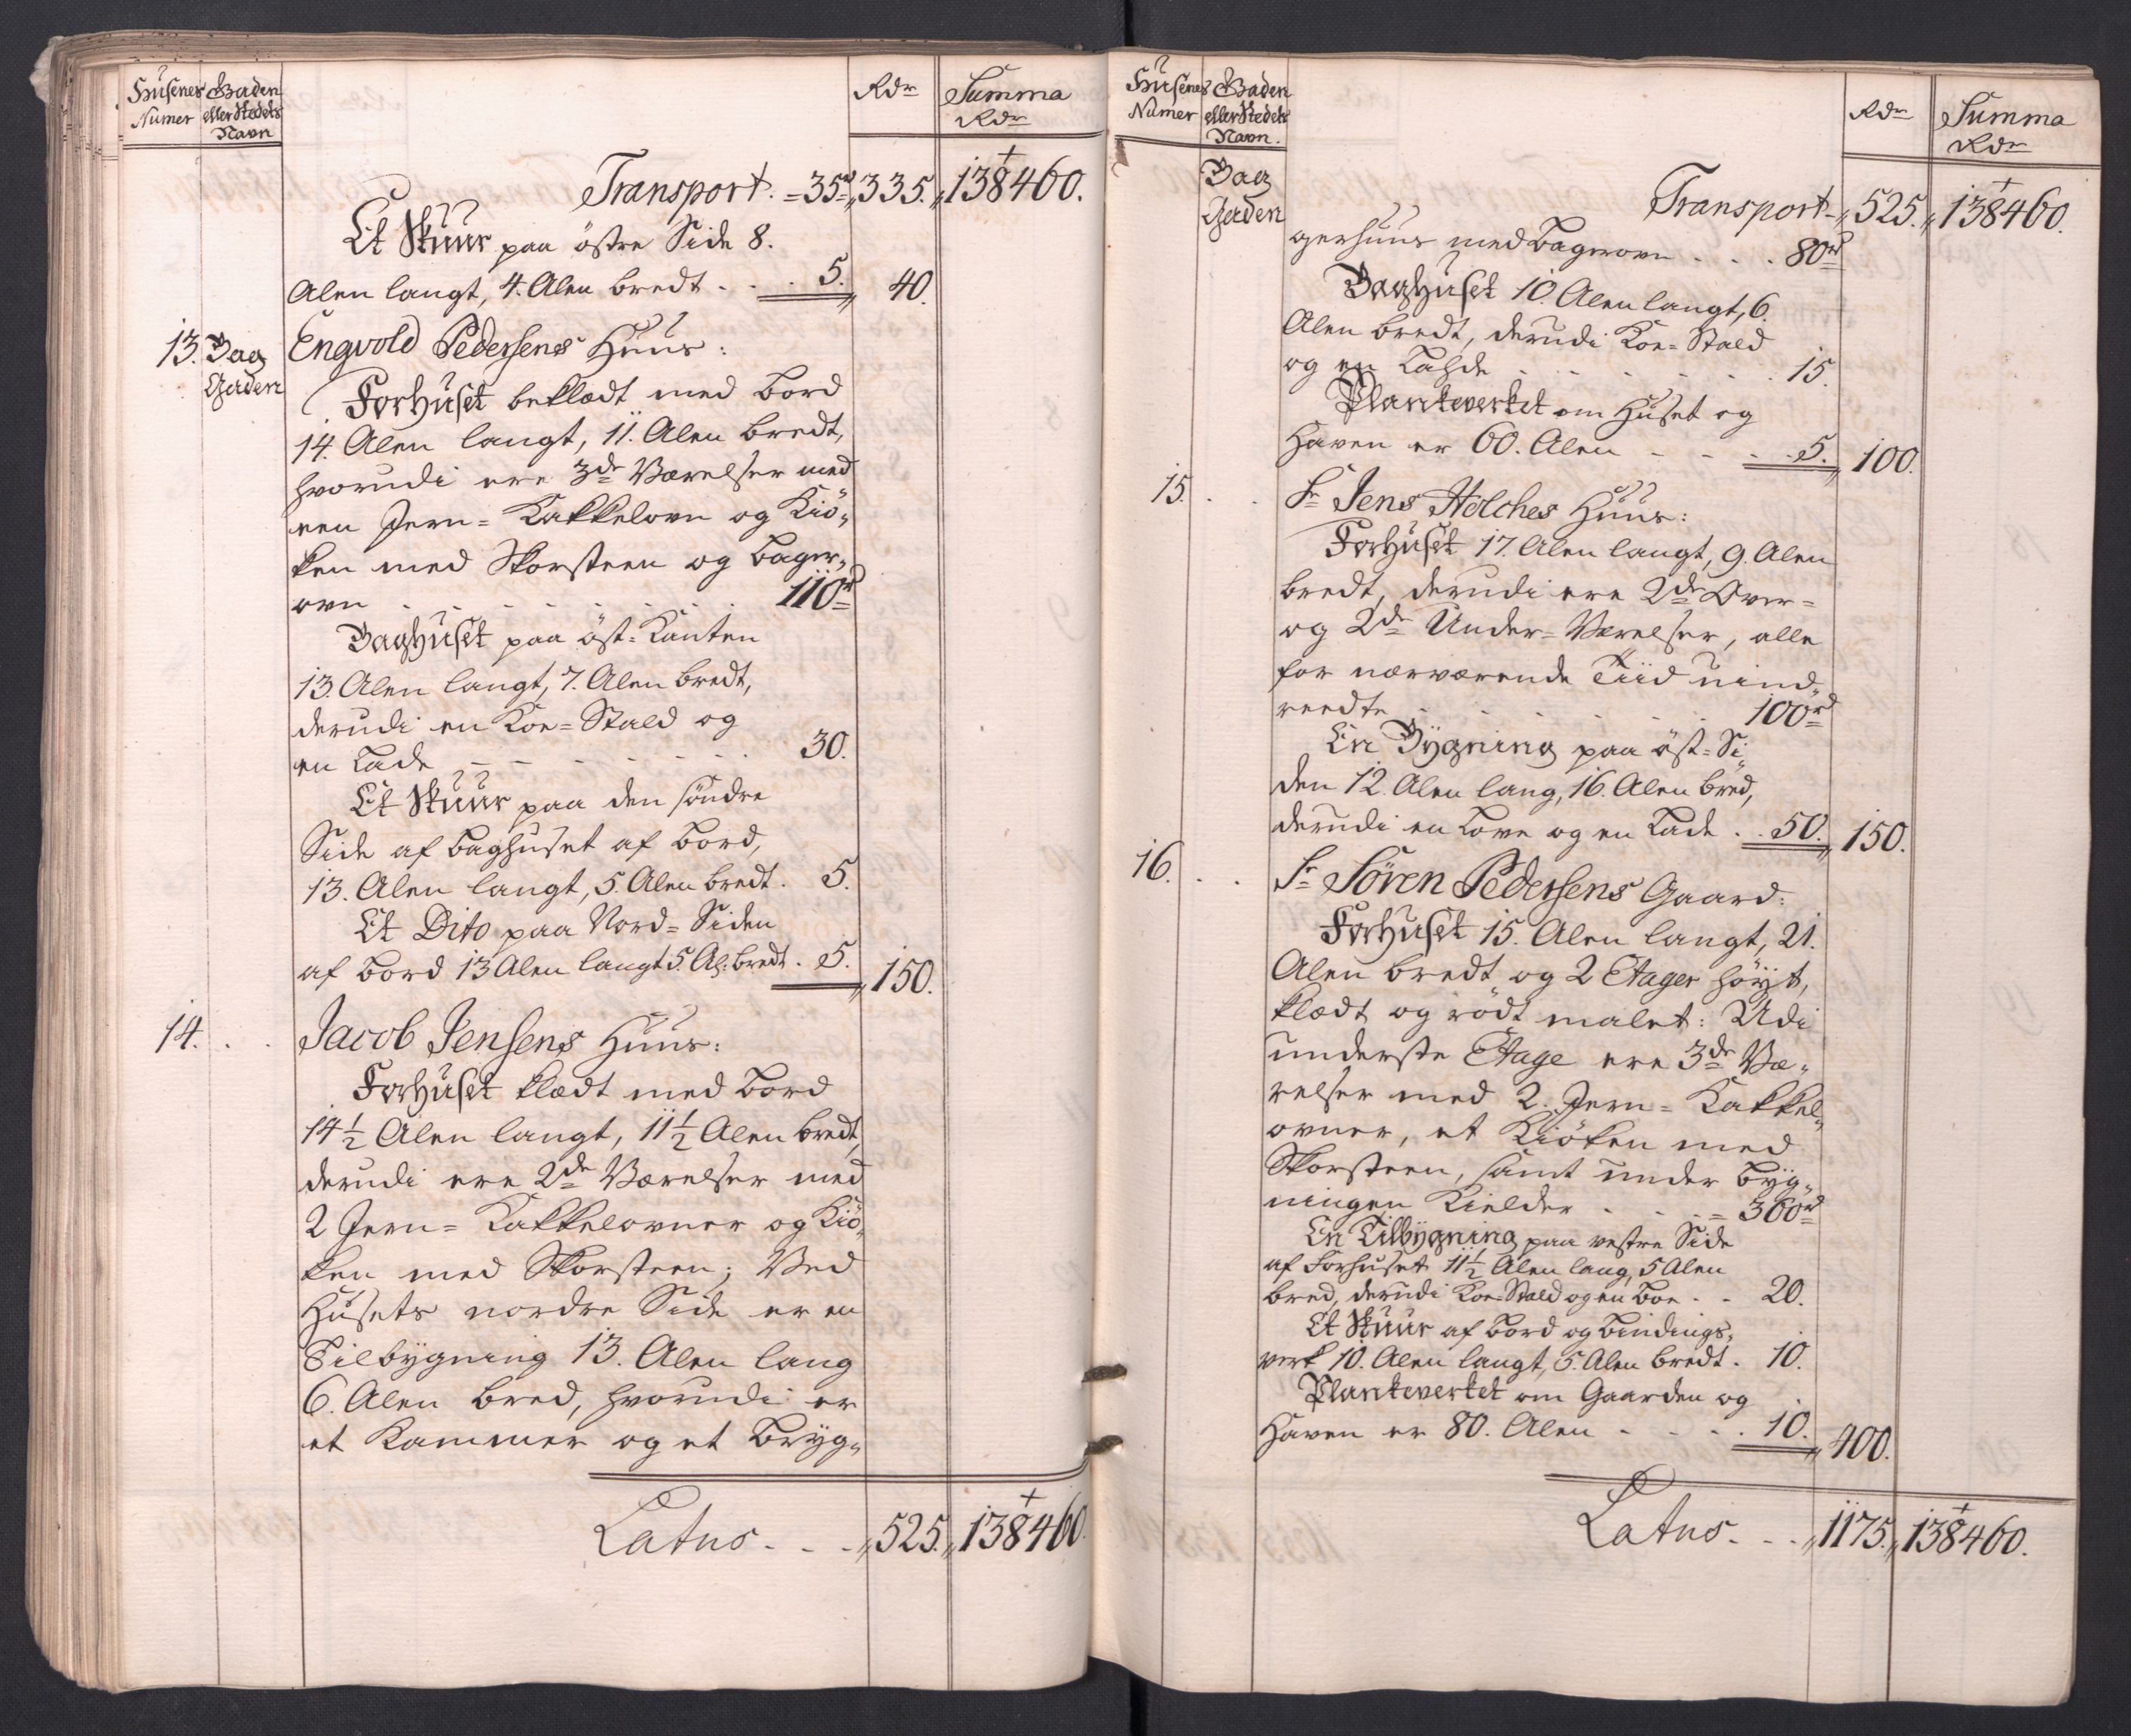 Husenes Numer
Gaden eller Stedets Navn
Rdr
Summa Rdr
Transport. = 35rd „335. „138460.
Et Skuur paa östre Side 8.
Alen langt, 4. Alen bredt . . . 5. „ 40.
13. Bag Gaden Engvold Pedersens Huus:
Forhuset beklædt med bord
14. Alen langt, 11. Alen bredt,
hvorudi ere 3de Værelser med
een Jern= Kakkelovn og Kiö„
ken med Skorsteen og bager„
ovn . . . . . . . 110rd
Baghuset paa öst= Kanten
13. Alen langt, 7. Alen bredt,
derudi en Koe= Stald og
en Lade - - - - - . . 30.
Et Skuur paa den söndre
Side af baghuset af bord,
13. Alen langt, 5. Alen bredt . 5.
Et Dito paa Nord= Siden
af bord 13 Alen langt 5. Al: bredt . 5. „150.
14. . . Jacob Jensens Huus:
Forhuset klædt med bord
14½ Alen langt, 11½ Alen bredt,
derudi ere 2de Værelser med
2 Jern= Kakkelovner og Kiö„
ken med Skorsteen; Ved
Husets nordre Side er en
Tilbygning 13. Alen lang
6. Alen bred, hvorudi er
et Kammer og et bryg„
Latus. . . „525. „138460.
Husenes Numer
Gaden eller Stedets Navn.
Rdr
Summa Rdr
Bag Gaden
Transport - „525. „138460.
gerhuus med bagerovn . . . 80rd
Baghuset 10. Alen langt, 6.
Alen bredt, derudi Koe= Stald
og en Lahde . . . . . 15.
Plankeverket om Huset og
Haven er 60. Alen - - - . 5. „100.
15. . . Sr Jens Holches Huus:
Forhuset 17. Alen langt, 9. Alen
bredt, derudi ere 2de Over=
og 2de Under= Værelser, alle
for nærværende Tiid uind„
reedte . . . . . . 100rd
En Bygning paa öst= Si„
den 12. Alen lang, 16. Alen bred,
derudi en Love og en Lade . . 50. „150.
16. . . Sr Sören Pedersens Gaard:
Forhuset 15. Alen langt, 21.
Alen bredt og 2 Etager höyt,
klædt og rödt malet: Udi
underste Etage ere 3de Væ„
relser med 2. Jern= Kakkel„
ovner, et Kiöken med
Skorsteen, samt under byg„
ningen Kielder . . . = 360rd
En Tilbygning paa vestre Side
af Forhuset 11½ Alen lang, 5 Alen
bred, derudi Koe= Stald og en boe . . 20.
Et Skuur af bord og bindings„
verk 10. Alen langt, 5. Alen bredt . 10.
Plankeverket om Gaarden og
Haven er 80. Alen - - - . 10. „400.
Latus. . . „1175. „138460.